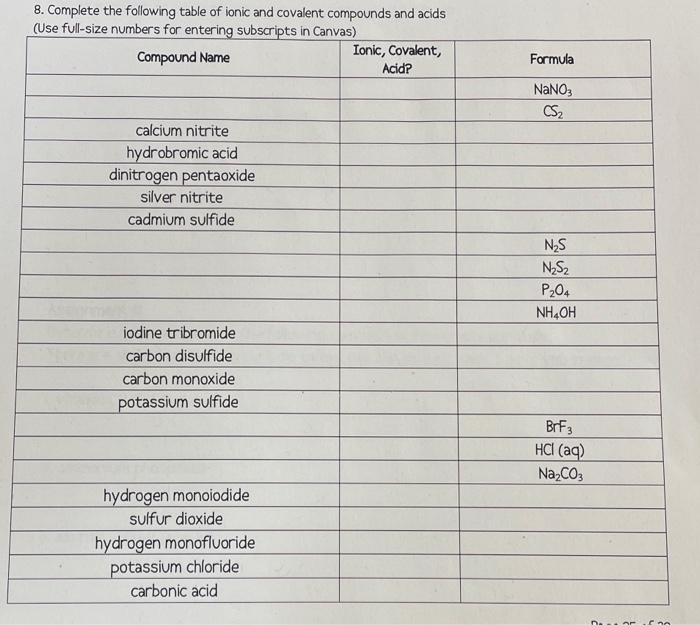 8. Complete the following table of ionic and covalent compounds and acids
(Use full-size numbers for entering subscripts in Canvas)
Compound Name
Ionic, Covalent,
Acid?
Formula
NaNO₃
CS₂
calcium nitrite
hydrobromic acid
dinitrogen pentaoxide
silver nitrite
cadmium sulfide
N₂S
N₂S₂
P₂O₄
NH₄OH
iodine tribromide
carbon disulfide
carbon monoxide
potassium sulfide
BrF₃
HCl (aq)
Na₂CO₃
hydrogen monoiodide
sulfur dioxide
hydrogen monofluoride
potassium chloride
carbonic acid